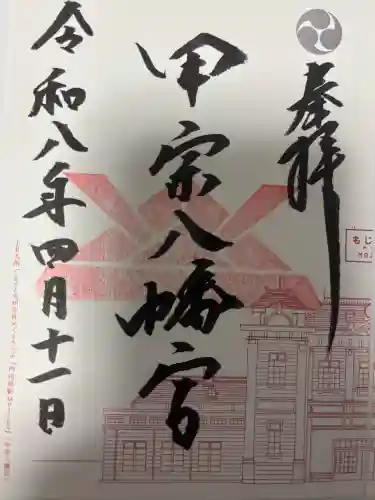 奉拝
甲宗八幡宮
令和八年四月十一日
もじ